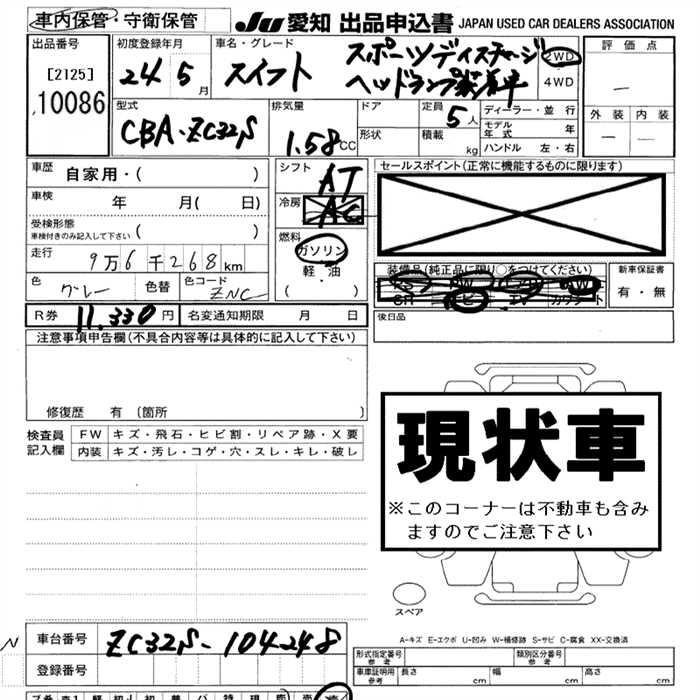 車内保管・守衛保管
JU 愛知 出品申込書 JAPAN USED CAR DEALERS ASSOCIATION
出品番号
[2125]
10086
初度登録年月
24 5月
車名・グレード
スイフト
スポーツディスチャージ
ヘッドランプ装着車
2WD
4WD
評価点
外装 内装
型式
CBA-ZC32S
排気量
1.58CC
ドア
形状
定員
5人
積載
kg
ディーラー・並行
モデル年式 年
ハンドル 左・右
車歴
自家用・( )
車検
年 月( 日)
受検形態
車検付きのみ記入して下さい
( )
走行
9万6千268km
色
グレー
色替
色コード
ZNC
シフト
AT
冷房
AC
燃料
ガソリン
軽・油
( )
セールスポイント(正常に機能するものに限ります)
装備品(純正品に限り○をつけてください)
新車保証書
有・無
後日品
R券
11.330円
名変通知期限 月 日
注意事項申告欄(不具合内容等は具体的に記入して下さい)
修復歴 有 〔箇所
検査員記入欄
FW キズ・飛石・ヒビ割・リペア跡・X要
内装 キズ・汚レ・コゲ・穴・スレ・キレ・破レ
現状車
※このコーナーは不動車も含み
ますのでご注意下さい
スペア
A-キズ E-エクボ U-凹み W-補修跡 S-サビ C-腐食 XX-交換済
N
車台番号
ZC32S-104248
登録番号
形式指定番号
参考
類別区分番号
参考
車庫証明用
参考
長さ cm
幅 cm
高さ cm